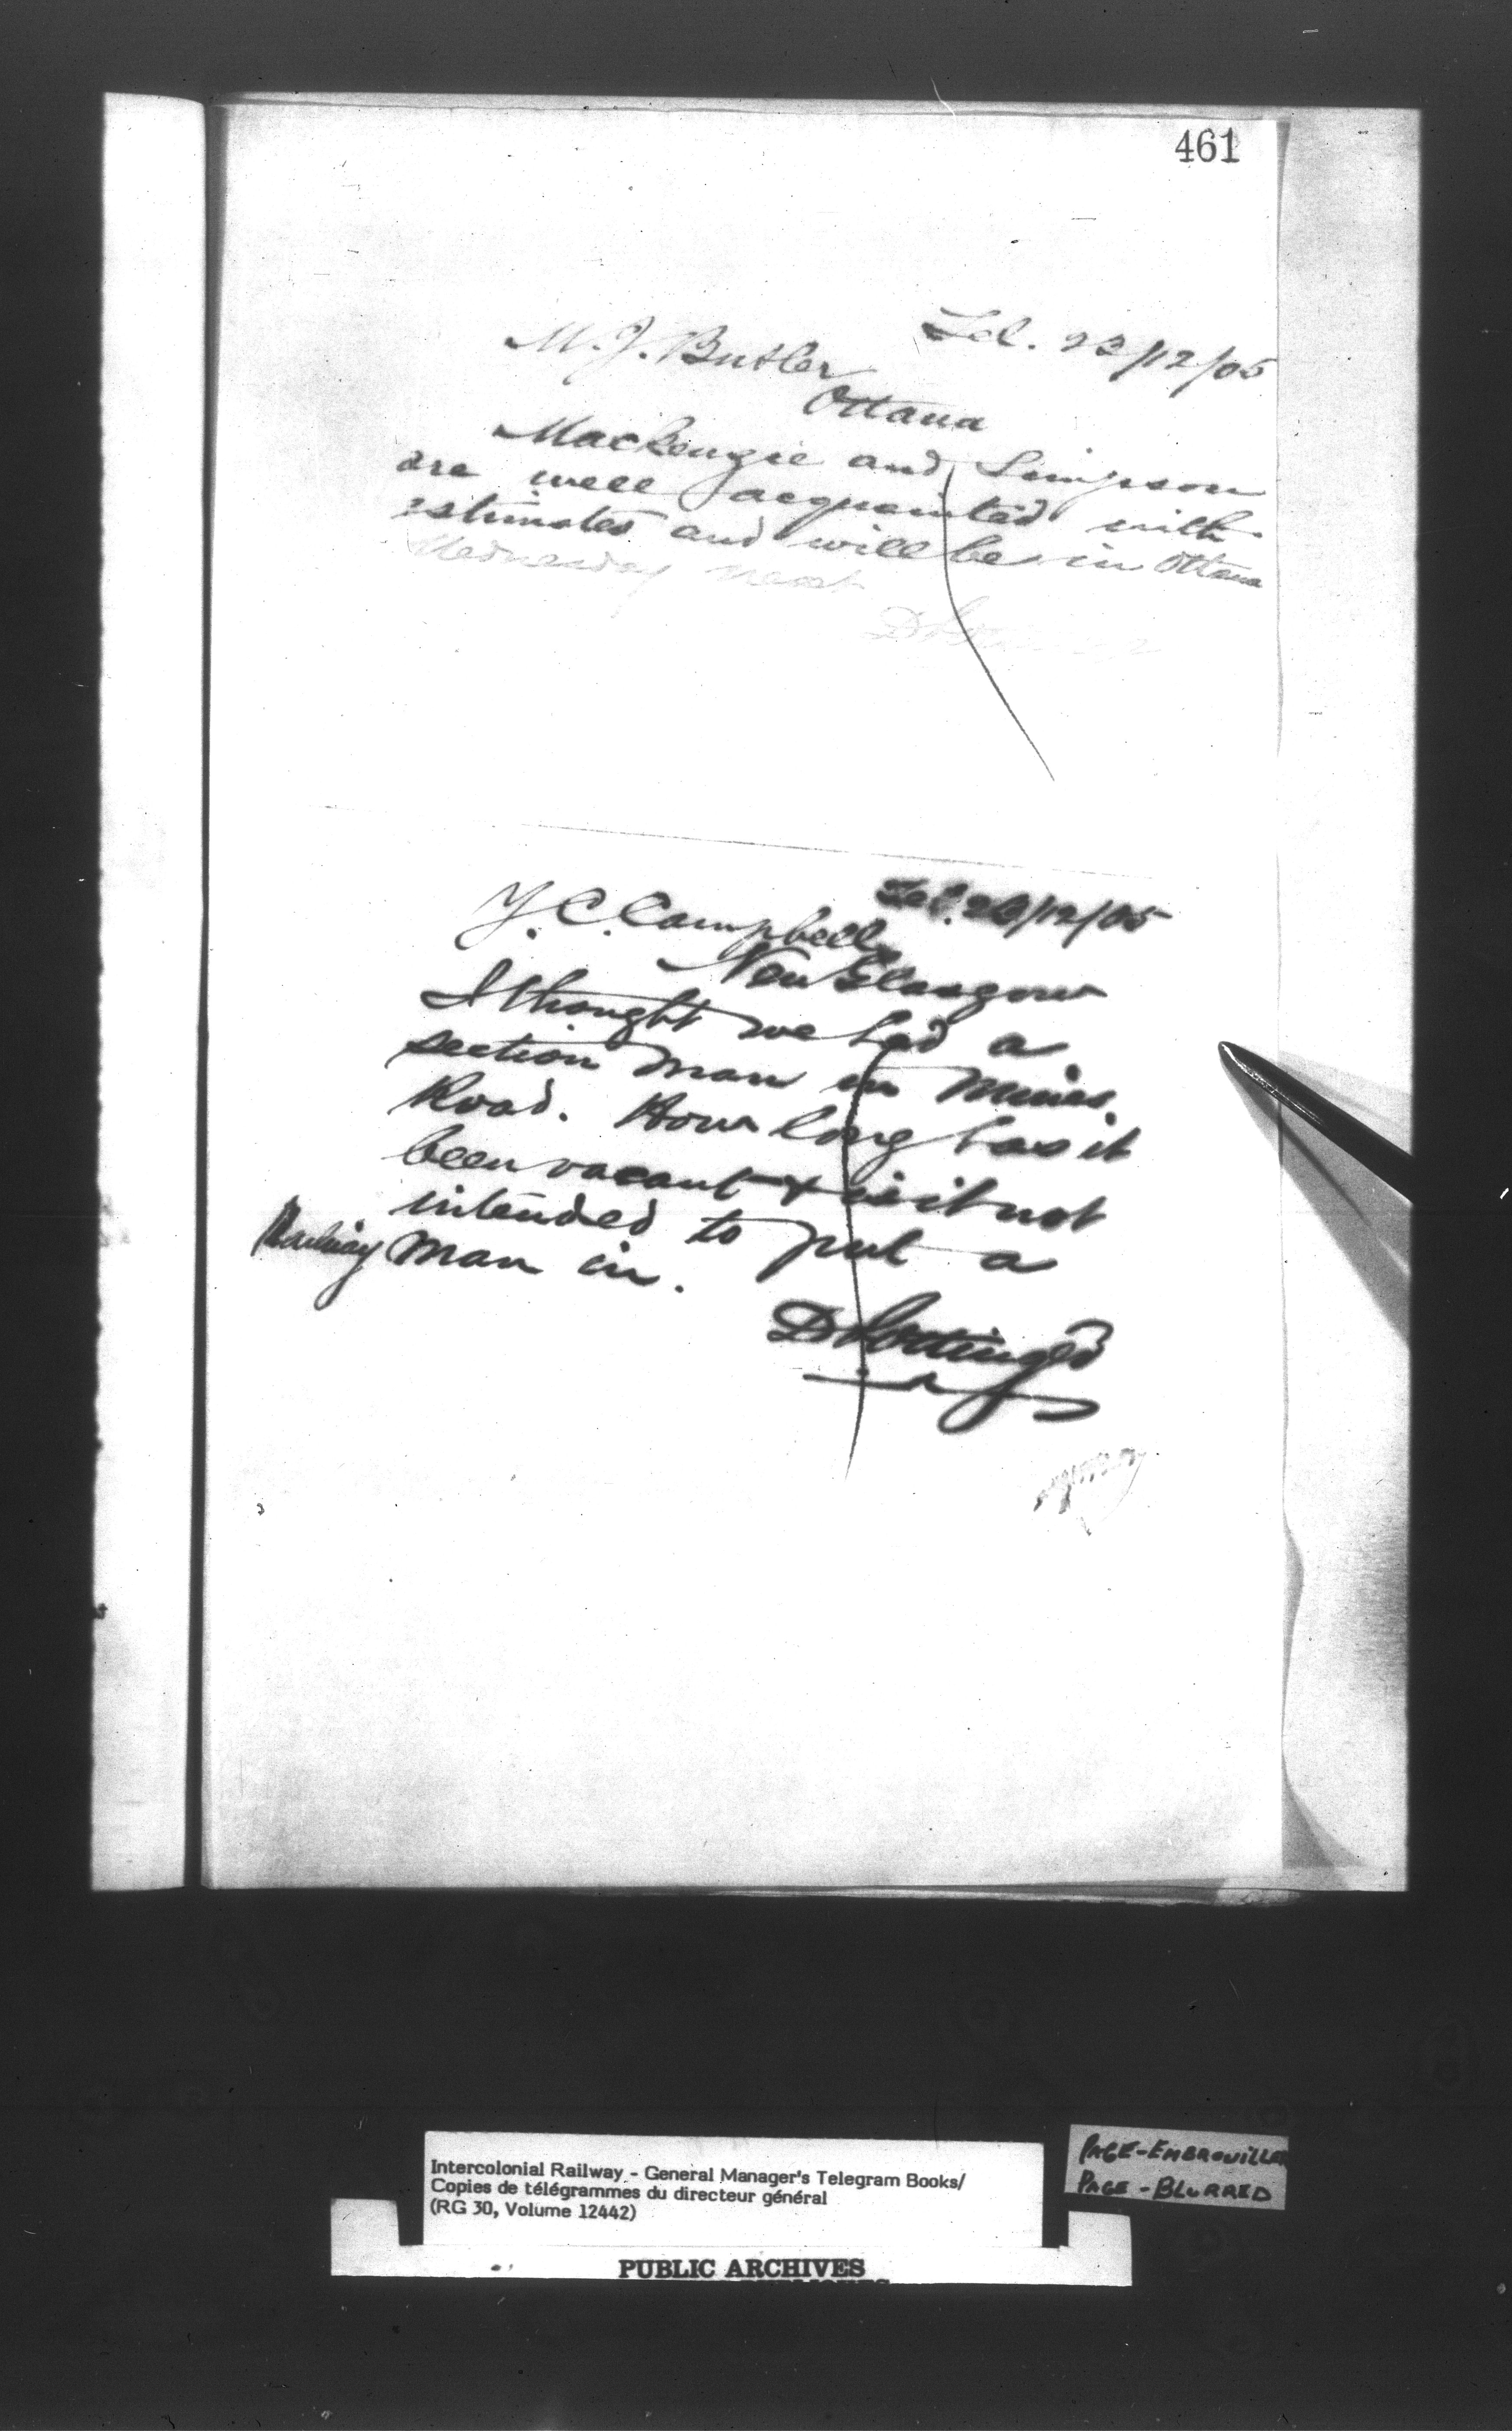 461
Tel. 23/12/05
M. J. Butler
Ottawa
Mackenzie and Simpson
are well acquainted with
estimates and will be in Ottawa
Wednesday next
Tel. 26/12/05
Y. C. Campbell
New Glasgow
I thought we had a
section man in Mines
Road. How long has it
been vacant & is it not
intended to put a
Railway man in.
D Pottinger
Intercolonial Railway - General Manager's Telegram Books/
Copies de télégrammes du directeur général
(RG 30, Volume 12442)
PAGE-EMBROUILLEE
PAGE-BLURRED
PUBLIC ARCHIVES